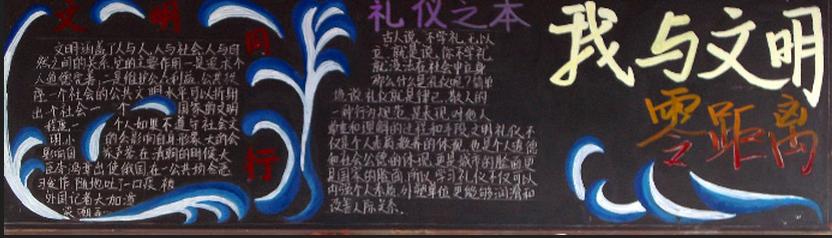 文明同行
文明涵盖了人与人,人与社会,人与自
然之间的关系,它的主要作用一是追求个
人道德完善,二是维护公众利益,公共秩
序。一个社会的公共文明水平可以折射
出个社会一个国家的文明
个人如果不遵守社会文
明,小的会影响自身形象,大的会
影响国
在清朝的时候大
臣李鸿章出使俄国在一公共场合恶
习发作,随地吐了一口痰,被
外国记者大加渲
礼仪之本
古人说:不学礼,无以
立。就是说,你不学礼,
就没法在社会中立身。
那么什么是礼仪呢?简单
地说,礼仪就是律己,敬人的
一种行为规范,是表现对他人
尊重和理解的过程和手段。文明礼仪,不
仅是个人素质,教养的体现,也是个人道德
和社会公德的体现。更是城市的脸面,更
是国家的脸面。所以,学习礼仪不仅可以
内强个人素质,外塑单位更能够润滑和
改善人际关系。
我与文明
零距离